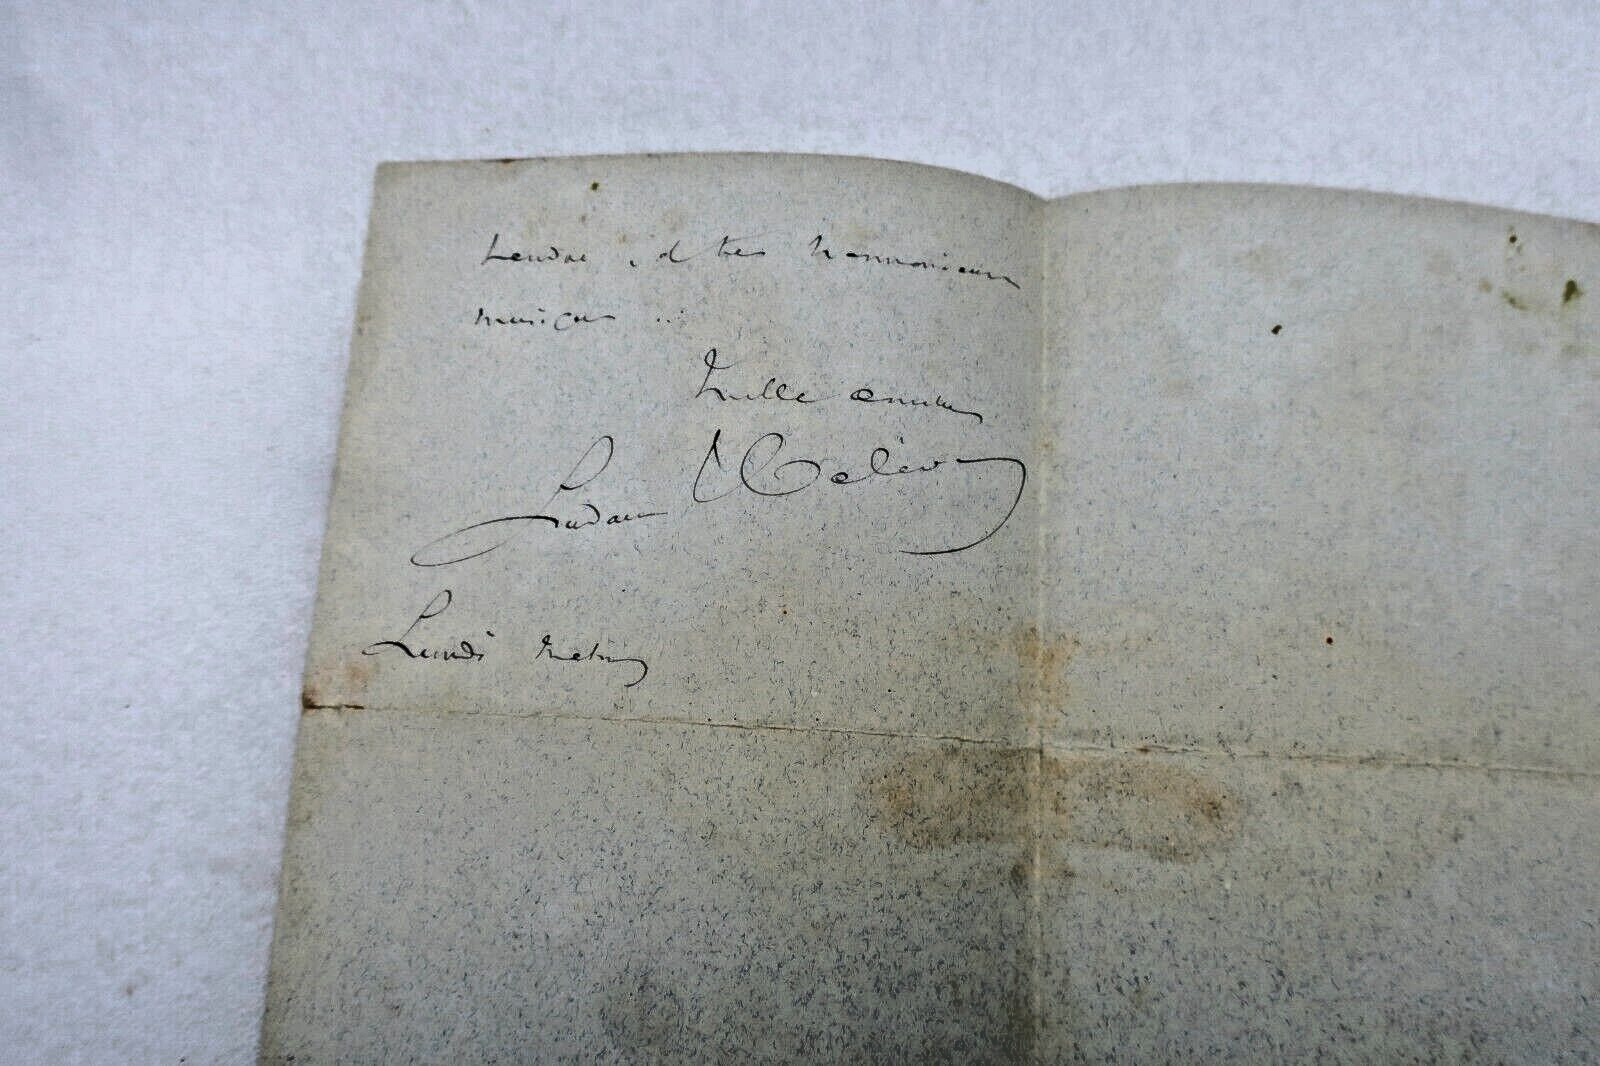 tendre, et très harmonieuse
musique ...
Mille amitiés
Ludovic Halévy
Lundi matin